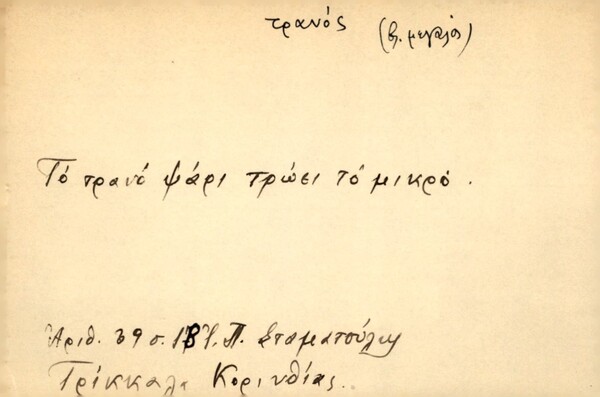 τρανός (βλ. μεγάλος)
Τό τρανό ψάρι τρώει τό μικρό.
Ἀριθ. 39 σ. 18 Π. Σταματούλη
Τρίκκαλα Κορινθίας.